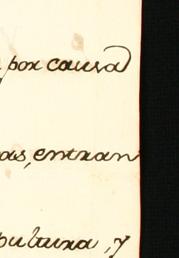 por causa
as, entran
pultura, y